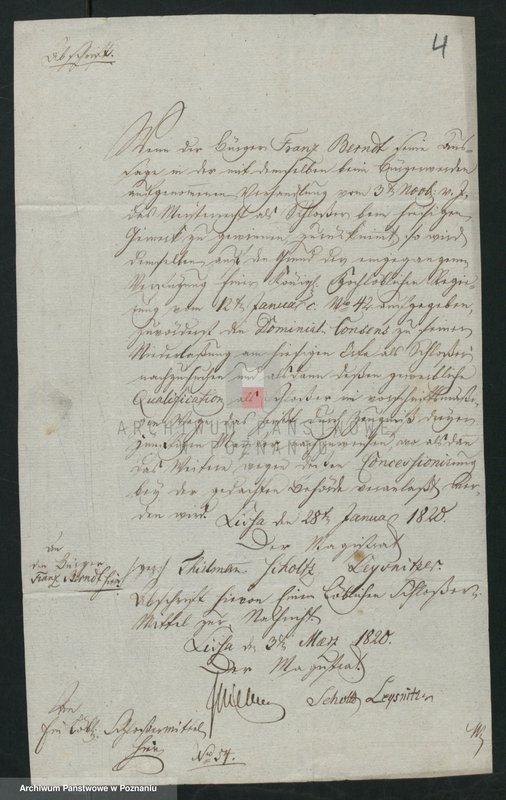 4
Abschrift.
Wenn der Bürger Franz Berndt seine Aus-
sage in der mit demselben beim Bürgerwerden
aufgenommenen Verhandlung vom 3t Novb: v. J.
das Meisterrecht als Schloßer beim hiesigen
Gewerk zu gewinnen zurücknimt, so wird
demselben auf den Grund der eingegangenen
Verfügung Einer Königl. Hochlöblichen Regie-
rung vom 12t Januar c. No 42 aufgegeben,
zuvörderst den Dominial Consens zu seiner
Niederlaßung am hiesigen Orte als Schloßer
nachzusuchen und alsdann deßen gewerbliche
Qualification als Schloßer
durch Zeugniß
nachzuweisen, wo alsdan
das Weitere wegen Concessionirung
bey der gedachten Behörde veranlaßt wer-
den wird. Lissa den 28t Januar 1820.
Der Magistrat
An
den Bürger
Franz Berndt hier
(gez) Thielman Scholtz Leysnitzer
Abschrift hiervon Einem Löblichen Schloßer-
Mittel zur Nachricht.
Lissa den 3t März 1820.
Der Magistrat
Scholtz Leysnitzer
An
Ein Löbl. Schloßermittel
hier
No 54.
ARCHIWUM PAŃSTWOWE
W POZNANIU
Archiwum Państwowe w Poznaniu